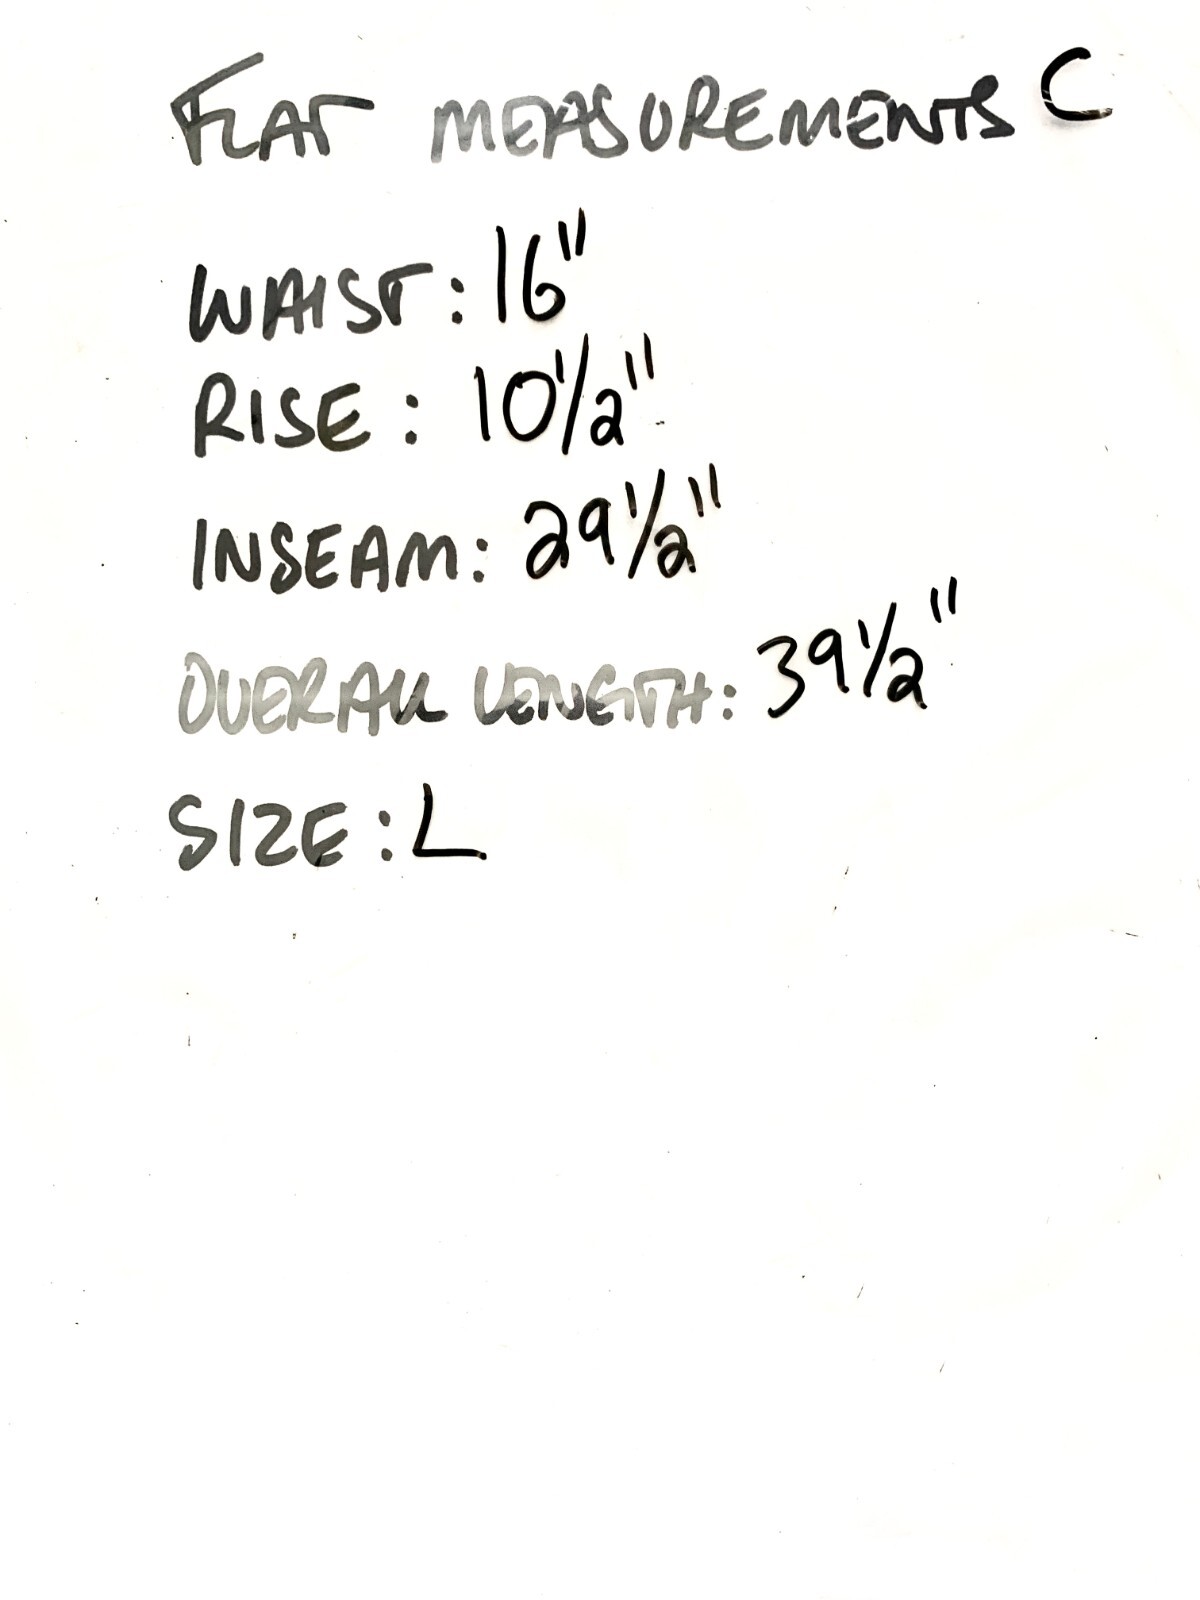 FLAT MEASUREMENTS C
WAIST: 16"
RISE: 10 1/2"
INSEAM: 29 1/2"
OVERALL LENGTH: 39 1/2"
SIZE: L